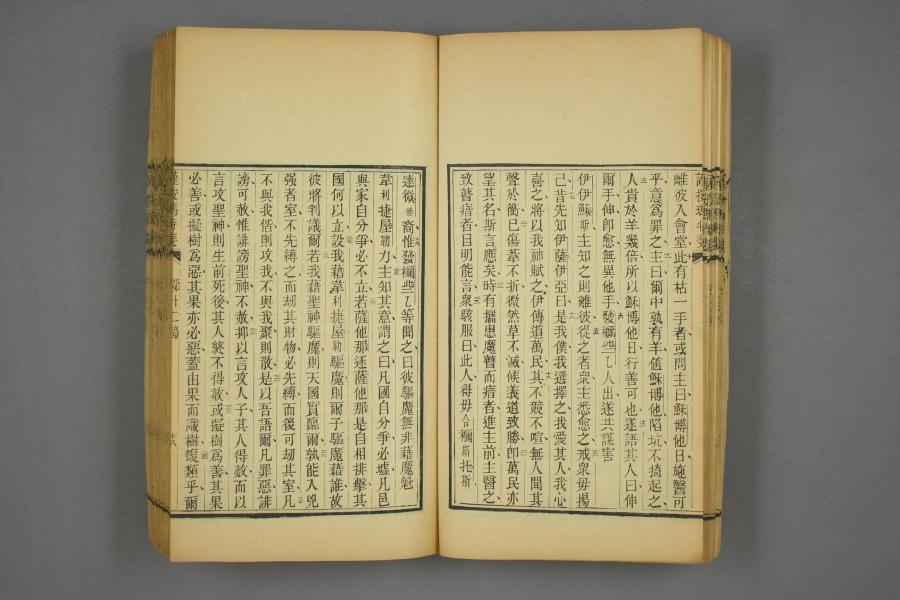 離彼入會堂此有枯一手者或問主曰穌博他日施醫可
乎意爲罪之主曰爾中孰有羊値穌博他陷坑不掎起之
人貴於羊幾倍所以穌博他日行善可也遂語其人曰伸
爾手伸卽愈無異他手發欄些乚人出遂共謀害
伊伊穌斯主知之則離彼從之者衆主悉愈之戒衆毋揚
己昔先知伊薩伊亞曰是我僕我選擇之我愛其人我心
喜之將以我神賦之伊傳道萬民其不競不喧無人聞其
聲於衢已傷葦不折微然草不滅候義道致勝卽萬民亦
望其名斯言應矣時有攜患魔瞽而瘖者進主前主醫之
致瞽瘖者目明能言衆駭服曰此人得毋合欄斯托斯
達微裔惟發欄些乚等聞之曰彼驅魔無非藉魔魁
韋利捷屋勒力主知其意謂之曰凡國自分爭必墟凡邑
與家自分爭必不立若薩他那逐薩他那是自相排擊其
國何以立設我藉韋利捷屋勒驅魔則爾子驅魔藉誰故
彼將判議爾若我藉聖神驅魔則天國實臨爾孰能入兇
强者室不先縛之而刼其財物必先縛而後可刼其室凡
不與我偕則攻我不與我聚則散是以吾語爾凡罪惡誹
謗可赦惟誹謗聖神不赦抑以言攻人子其人得赦而以
言攻聖神則生前死後其人終不得赦或擬樹爲善其果
必善或擬樹爲惡其果亦必惡蓋由果而識樹蝮類乎爾